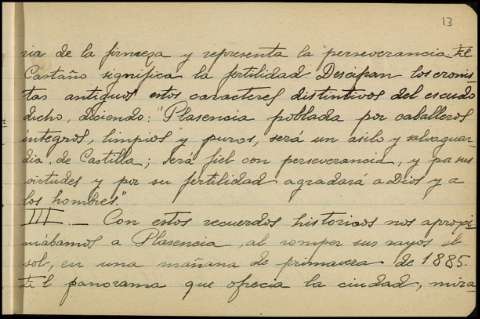 13
ria de la firmeza y representa la perseverancia. El
Castaño significa la fertilidad Descifran los cronis
tas antiguos estos caracteres distintivos del escudo
dicho, diciendo: "Plasencia poblada por caballeros
íntegros, limpios y puros, será un asilo y salvaguar
dia, de Castilla; será fiel con perseverancia, y por sus
virtudes y por su fertilidad agradará a Dios y a
los hombres".
III._ Con estos recuerdos históricos nos aproxi
mábamos a Plasencia, al romper sus rayos el
sol, en una mañana de primavera de 1885.
El panorama que ofrecía la ciudad, mira